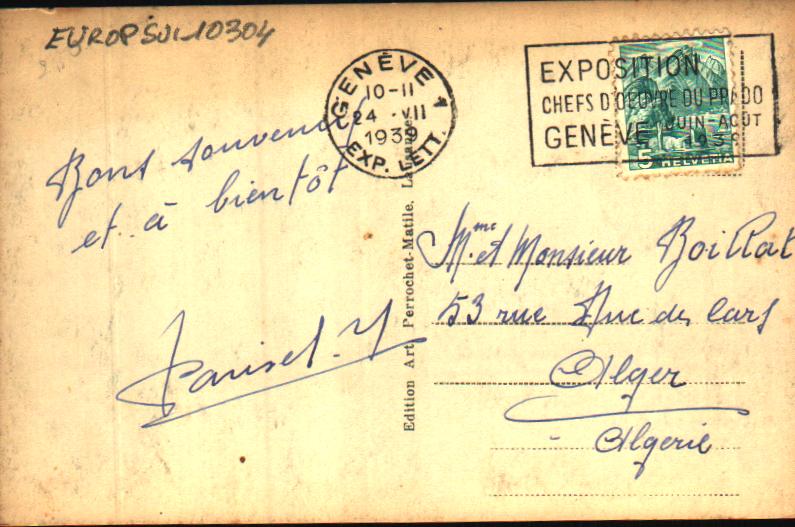 EUROPSUI-10304
GENÈVE 1
10-11
24 . VII
1939
EXP. LETT.
EXPOSITION
CHEFS D'OEUVRE DU PRADO
JUIN-AOUT
GENÈVE 1939
5 HELVETIA
Bons souvenirs
et à bientôt
Edition Art. Perrochet-Matile, Lausanne
Mme et Monsieur Boillat
53 rue Duc des Cars
Alger
Algerie